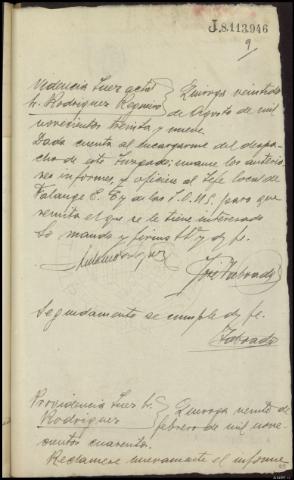 J.8.113.946
9
Providencia Juez actal
Sr. Rodriguez Regueiro
Quiroga veintidos
de Agosto de mil
novecientos treinta y nueve
Dada cuenta al encargarme del despa-
cho de este Juzgado; unanse los anterio-
res informes y oficiese al Jefe local de
Falange E. T. y de las J.O.N.S. para que
remita el que se le tiene interesado
Lo mando y firmo Sª y doy fe.
José Taboada
Seguidamente se cumple doy fe.
Taboada
Providencia Juez Sr.
Rodriguez
Quiroga veinte de
febrero de mil nove-
cientos cuarenta.
Reclamese nuevamente el informe